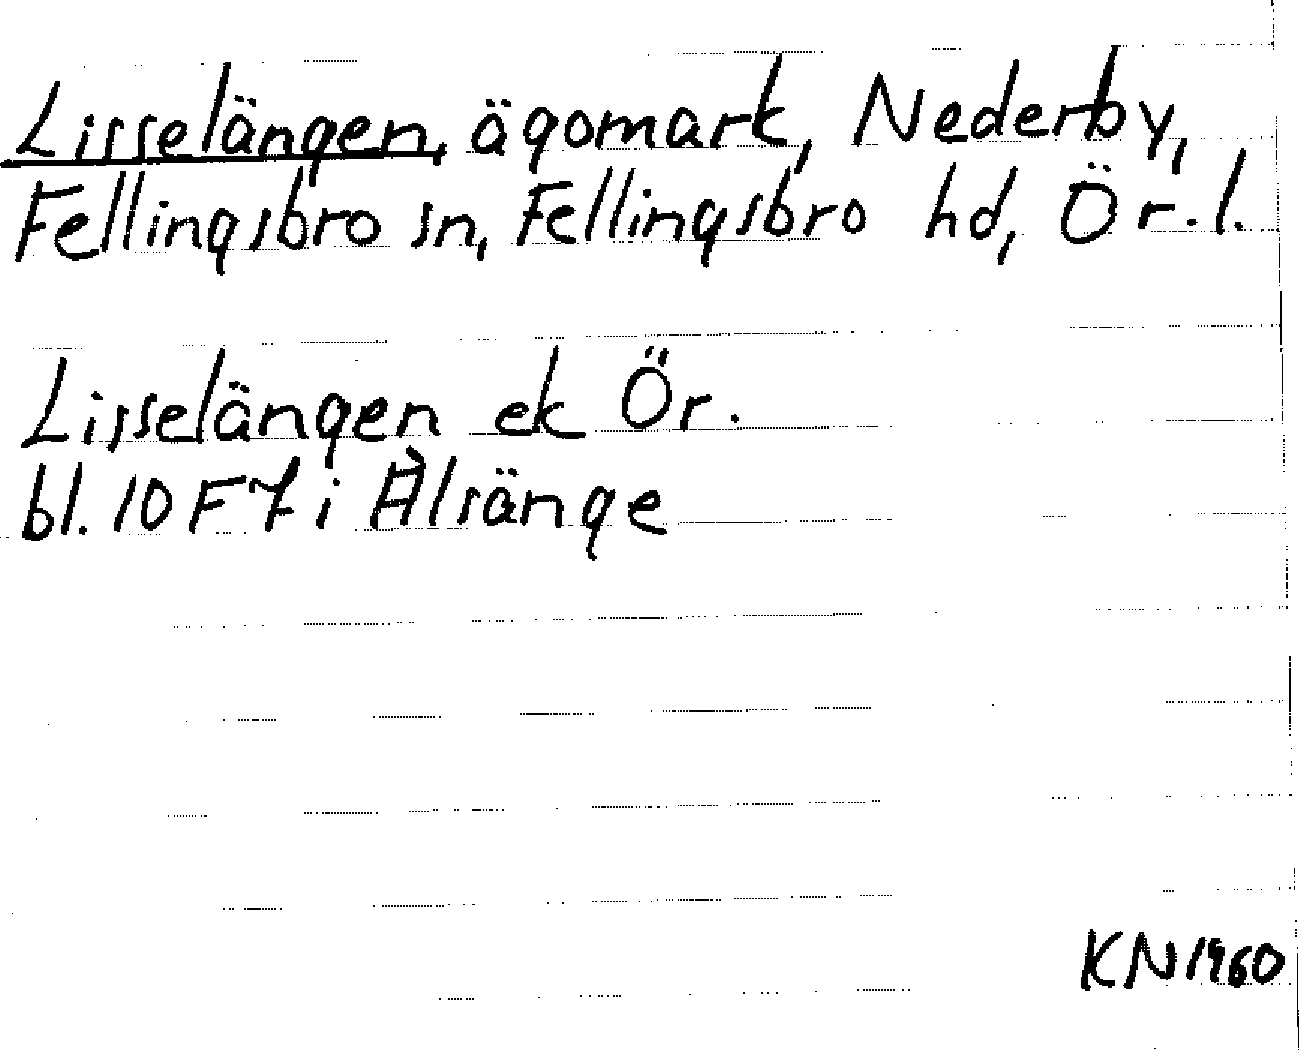 Lisselängen, ägomark, Nederby,
Fellingsbro sn, Fellingsbro hd, Ör. l.
Lisselängen ek Ör.
bl. 10 F 7 i Älsänge
KN 1960